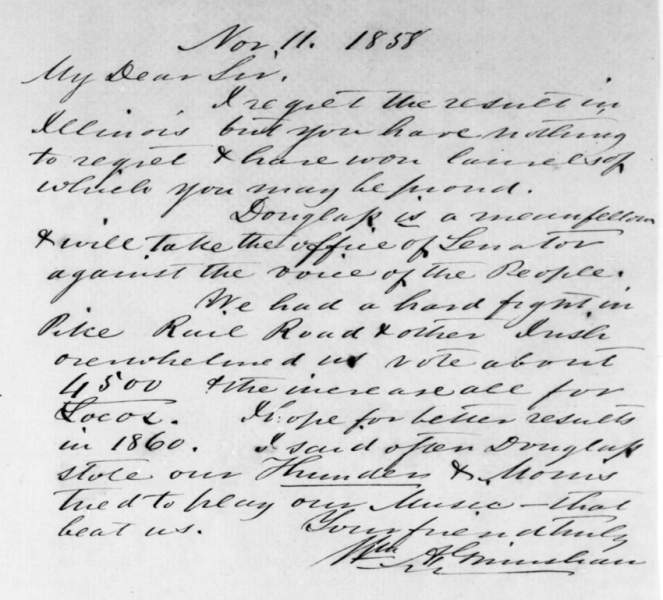 Nov. 11. 1858
My Dear Sir.
I regret the result in
Illinois but you have nothing
to regret & have won laurels of
which you may be proud.
Douglass is a mean fellow
& will take the office of Senator
against the voice of the People.
We had a hard fight in
Pike Rail Road & other Irish
overwhelmed us vote about
4500 & the increase all for
Locos. I hope for better results
in 1860. I said often Douglass
stole our Thunder & Morris
tried to play our Music — that
beat us. Your friend truly
Wm A Grimshaw